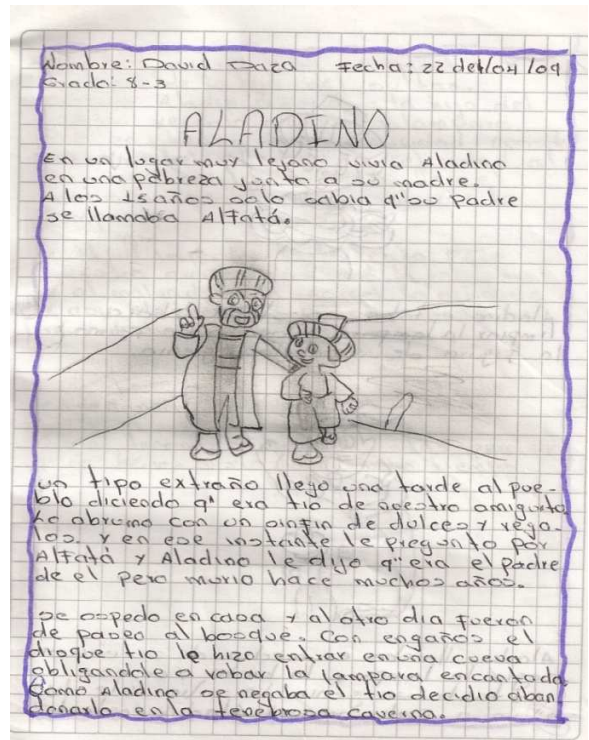 Nombre: David Daza Fecha: 22 del/04/09
Grado: 8-3
ALADINO
En un lugar muy lejano vivia Aladino
en una pobreza junto a su madre.
A los 15 años solo sabia q" su padre
se llamaba Alfatá.
un tipo extraño llego una tarde al pue-
blo diciendo q" era tio de nuestro amiguito
Lo abrumo con un sinfin de dulces y rega-
los. y en ese instante le pregunto por
Alfatá y Aladino le dijo q" era el padre
de el pero murio hace muchos años.
se ospedo en casa y al otro dia fueron
de paseo al bosque. Con engaños el
dizque tio le hizo entrar en una cueva
obligandole a robar la lampara encantada
Como Aladino se negaba el tio decidio aban
donarlo en la tenebrosa caverna.